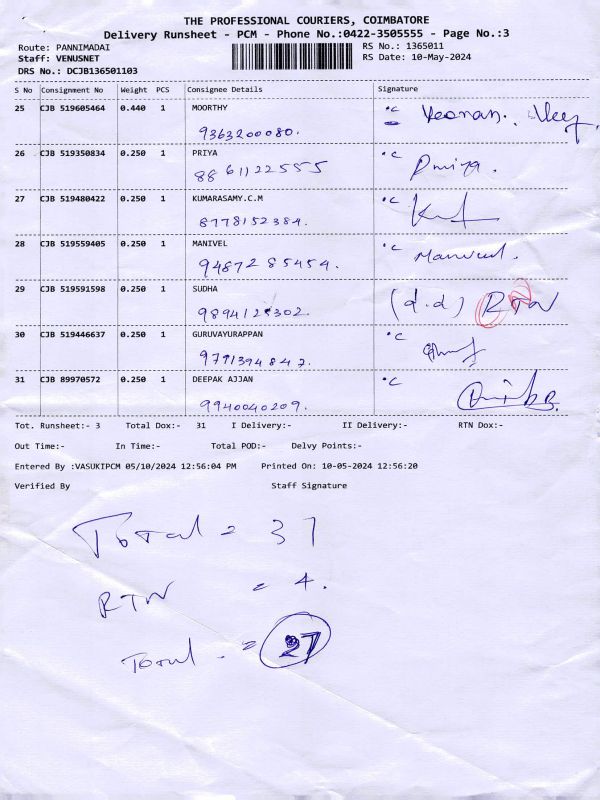 THE PROFESSIONAL COURIERS, COIMBATORE
Delivery Runsheet - PCM - Phone No.:0422-3505555 - Page No.:3
Route: PANNIMADAI RS No.: 1365011
Staff: VENUSNET RS Date: 10-May-2024
DRS No.: DCJB136501103
S No Consignment No Weight PCS Consignee Details Signature
25 CJB 519605464 0.440 1 MOORTHY °C
9363200080.
26 CJB 519350834 0.250 1 PRIYA °C
8861122555
27 CJB 519480422 0.250 1 KUMARASAMY.C.M °C
8778152384.
28 CJB 519559405 0.250 1 MANIVEL °C
9487285454.
29 CJB 519591598 0.250 1 SUDHA (d.d) RTN
30 CJB 519446637 0.250 1 GURUVAYURAPPAN °C
9791394847.
31 CJB 89970572 0.250 1 DEEPAK AJJAN °C
9940040209.
Tot. Runsheet:- 3 Total Dox:- 31 I Delivery:- II Delivery:- RTN Dox:-
Out Time:- In Time:- Total POD:- Delvy Points:-
Entered By :VASUKIPCM 05/10/2024 12:56:04 PM Printed On: 10-05-2024 12:56:20
Verified By Staff Signature
Total = 31
RTN = 4.
Total = 27